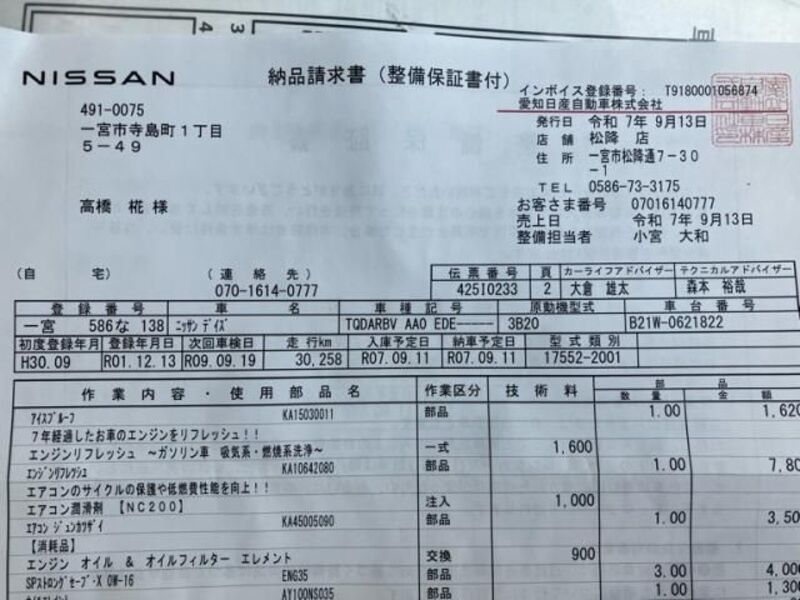 4 3
NISSAN
納品請求書（整備保証書付）
インボイス登録番号： T9180001056874
愛知日産自動車株式会社
発行日 令和 7年 9月13日
店舗 松降 店
住所 一宮市松降通7－30
－1
TEL 0586-73-3175
お客さま番号 07016140777
売上日 令和 7年 9月13日
整備担当者 小宮 大和
491-0075
一宮市寺島町1丁目
5－49
高橋 椛 様
（自 宅） （連絡先）
070-1614-0777
伝票番号 頁 カーライフアドバイザー テクニカルアドバイザー
425I0233 2 大倉 雄太 森本 裕哉
登録番号 車名 車種記号 原動機型式 車台番号
一宮 586な 138 ﾆｯｻﾝ ﾃﾞｲｽﾞ TQDARBV AA0 EDE----- 3B20 B21W-0621822
初度登録年月 登録年月日 次回車検日 走行km 入庫予定日 納車予定日 型式類別
H30.09 R01.12.13 R09.09.19 30,258 R07.09.11 R07.09.11 17552-2001
作業内容・使用部品名 作業区分 技術料 部品
数量 金額
ｱｲｽﾌﾟﾙｰﾌ KA15030011 部品 1.00 1,620
7年経過したお車のエンジンをリフレッシュ！！
エンジンリフレッシュ ～ガソリン車 吸気系・燃焼系洗浄～ 一式 1,600
ｴﾝｼﾞﾝﾘﾌﾚｯｼｭ KA10642080 部品 1.00 7,80
エアコンのサイクルの保護や低燃費性能を向上！！
エアコン潤滑剤 【NC200】 注入 1,000
ｴｱｺﾝ ｼﾞｭﾝｶﾂｻﾞｲ KA45005090 部品 1.00 3,50
【消耗品】
エンジン オイル ＆ オイルフィルター エレメント 交換 900
SPｽﾄﾛﾝｸﾞｾｰﾌﾞ･X 0W-16 ENG35 部品 3.00 4,00
AY100NS035 部品 1.00 1,30